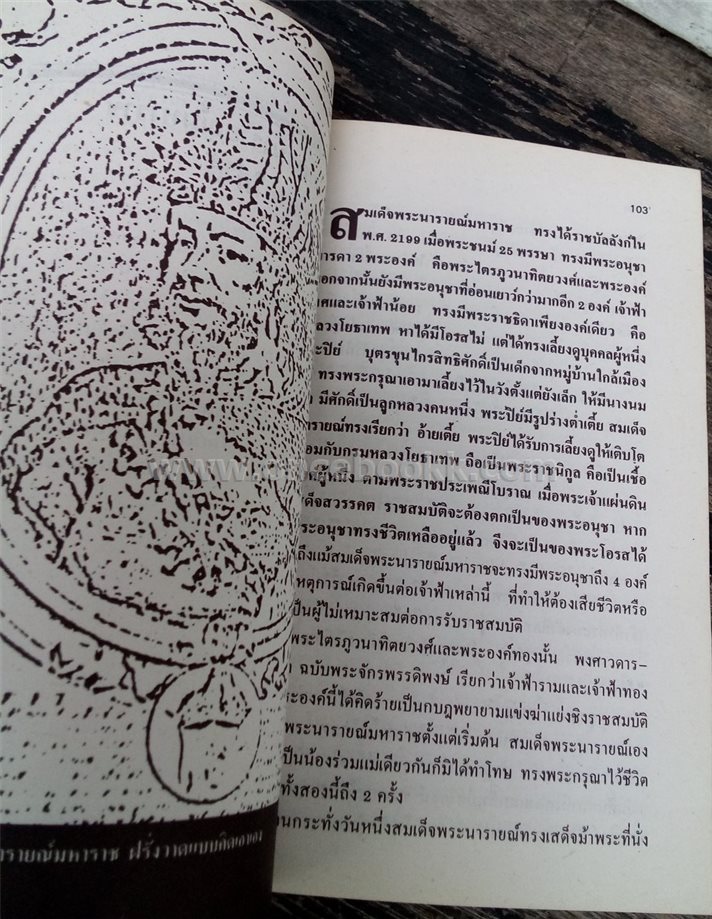 103
สมเด็จพระนารายณ์มหาราช ทรงได้ราชบัลลังก์ใน
พ.ศ. 2199 เมื่อพระชนม์ 25 พรรษา ทรงมีพระอนุชา
ารดา 2 พระองค์ คือพระไตรภูวนาทิตยวงศ์และพระองค์
อกจากนั้นยังมีพระอนุชาที่อ่อนเยาว์กว่ามากอีก 2 องค์ เจ้าฟ้า
ศและเจ้าฟ้าน้อย ทรงมีพระราชธิดาเพียงองค์เดียว คือ
ลวงโยธาเทพ หาได้มีโอรสไม่ แต่ได้ทรงเลี้ยงดูบุคคลผู้หนึ่ง
ะปีย์ บุตรขุนไกรสิทธิศักดิ์เป็นเด็กจากหมู่บ้านใกล้เมือง
ทรงพระกรุณาเอามาเลี้ยงไว้ในวังตั้งแต่ยังเล็ก ให้มีนางนม
า มีศักดิ์เป็นลูกหลวงคนหนึ่ง พระปีย์มีรูปร่างต่ำเตี้ย สมเด็จ
ารายณ์ทรงเรียกว่า อ้ายเตี้ย พระปีย์ได้รับการเลี้ยงดูให้เติบโต
อมกับกรมหลวงโยธาเทพ ถือเป็นพระราชนิกูล คือเป็นเชื้อ
ผู้หนึ่ง ตามพระราชประเพณีโบราณ เมื่อพระเจ้าแผ่นดิน
ด็จสวรรคต ราชสมบัติจะต้องตกเป็นของพระอนุชา หาก
ระอนุชาทรงชีวิตเหลืออยู่แล้ว จึงจะเป็นของพระโอรสได้
ถึงแม้สมเด็จพระนารายณ์มหาราชจะทรงมีพระอนุชาถึง 4 องค์
หตุการณ์เกิดขึ้นต่อเจ้าฟ้าเหล่านี้ ที่ทำให้ต้องเสียชีวิตหรือ
เป็นผู้ไม่เหมาะสมต่อการรับราชสมบัติ
พระไตรภูวนาทิตยวงศ์และพระองค์ทองนั้น พงศาวดาร-
า ฉบับพระจักรพรรดิพงษ์ เรียกว่าเจ้าฟ้ารามและเจ้าฟ้าทอง
ระองค์นี้ได้คิดร้ายเป็นกบฎพยายามแข่งฆ่าแย่งชิงราชสมบัติ
พระนารายณ์มหาราชตั้งแต่เริ่มต้น สมเด็จพระนารายณ์เอง
เป็นน้องร่วมแม่เดียวกันก็มิได้ทำโทษ ทรงพระกรุณาไว้ชีวิต
ทั้งสองนี้ถึง 2 ครั้ง
นกระทั่งวันหนึ่งสมเด็จพระนารายณ์ทรงเสด็จม้าพระที่นั่ง
ารายณ์มหาราช ฝรั่งวาดแบบคิดเอาเอง